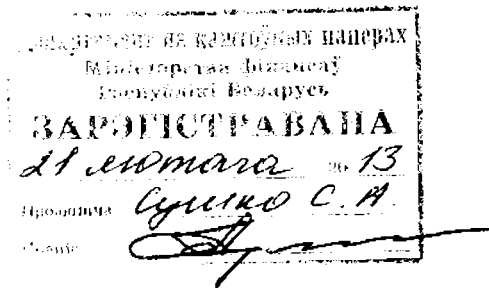 Дэпартамент па каштоўных паперах
Міністэрства фінансаў
Рэспублікі Беларусь
ЗАРЭГІСТРАВАНА
21 лютага 20 13
Прозвішча Сушко С. А
Подпіс